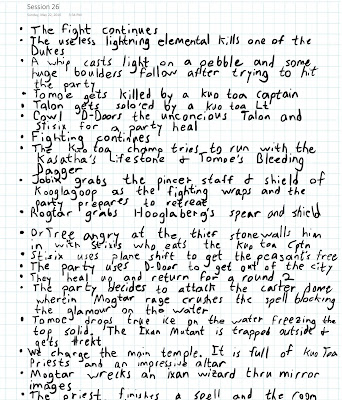 Session 26
• The fight continues
• The useless lightning elemental kills one of the
Dukes
• A whip casts light on a pebble and some
huge boulders follow after trying to hit
the party
• Tomoe gets killed by a kuo toa captain
• Talon gets soloed by a kuo toa Lt
• Cowl D-Doors the unconcious Talon and
Stisix for a party heal
• Fighting continues
• The Kuo toa champ tries to run with the
Kasatha's Lifestone & Tomoe's Bleeding
Dagger
• grabs the pincer staff & shield of
Kooglagoop as the fighting wraps and the
party prepares to retreat
• Rogtar grabs Hooglaberg's spear and shield
• Dr Tree angry at the, thief stonewalls him
in with Stisix who eats the kuo toa Cptn
• Stisix uses plane shift to get the peasants free
• The party uses D-Door to get out of the city
• They heal up and return for a round 2
• The party decides to attack the caster dome
wherein Mogtar rage crushes the spell blocking
the glamour on the water
• Tomoe drops true ice on the water freezing the
top solid. The Ixan Mutant is trapped outside &
gets #rekt
• We charge the main temple. It is full of Kuo Toa
Priests and an impressive altar
• Mogtar wrecks an ixan wizard thru mirror
images
• The priest finishes a spell and the room